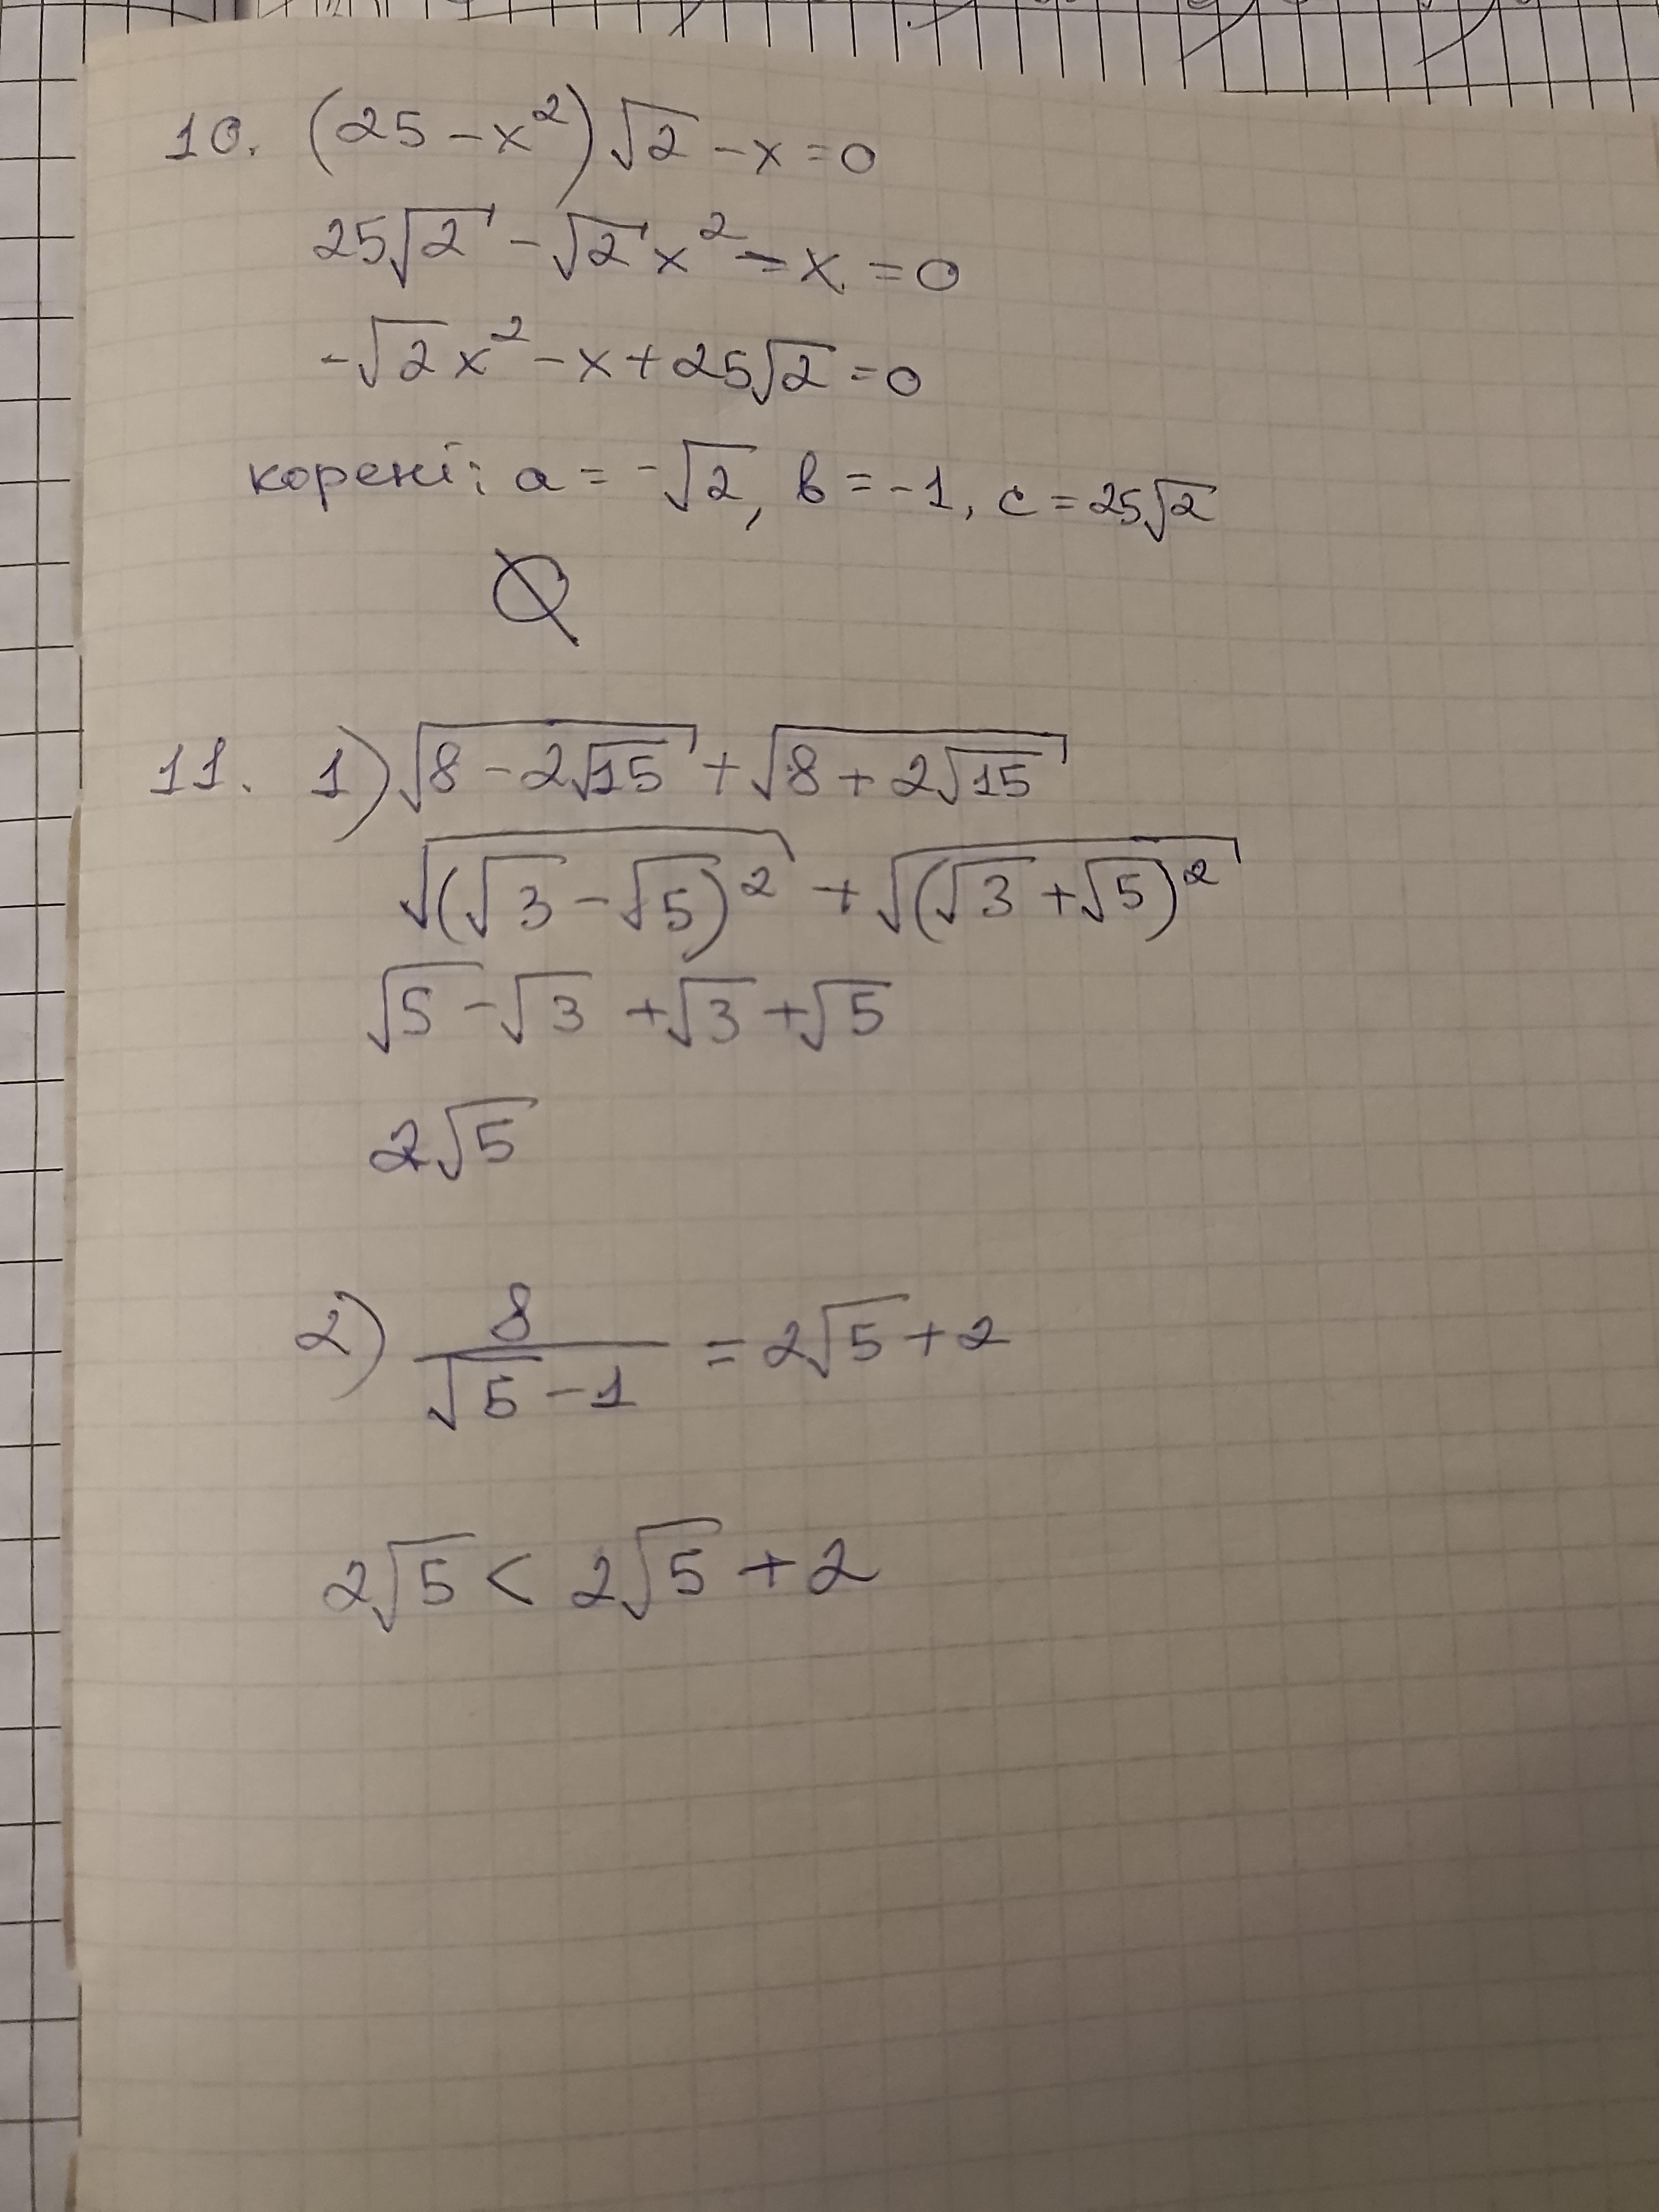 10. (25 - x²)√2 - x = 0
25√2 - √2x² - x = 0
-√2x² - x + 25√2 = 0
корені: a = -√2, b = -1, c = 25√2
∅
11. 1) √(8 - 2√15) + √(8 + 2√15)
√((√3 - √5)²) + √((√3 + √5)²)
√5 - √3 + √3 + √5
2√5
2) 8/(√5 - 1) = 2√5 + 2
2√5 < 2√5 + 2